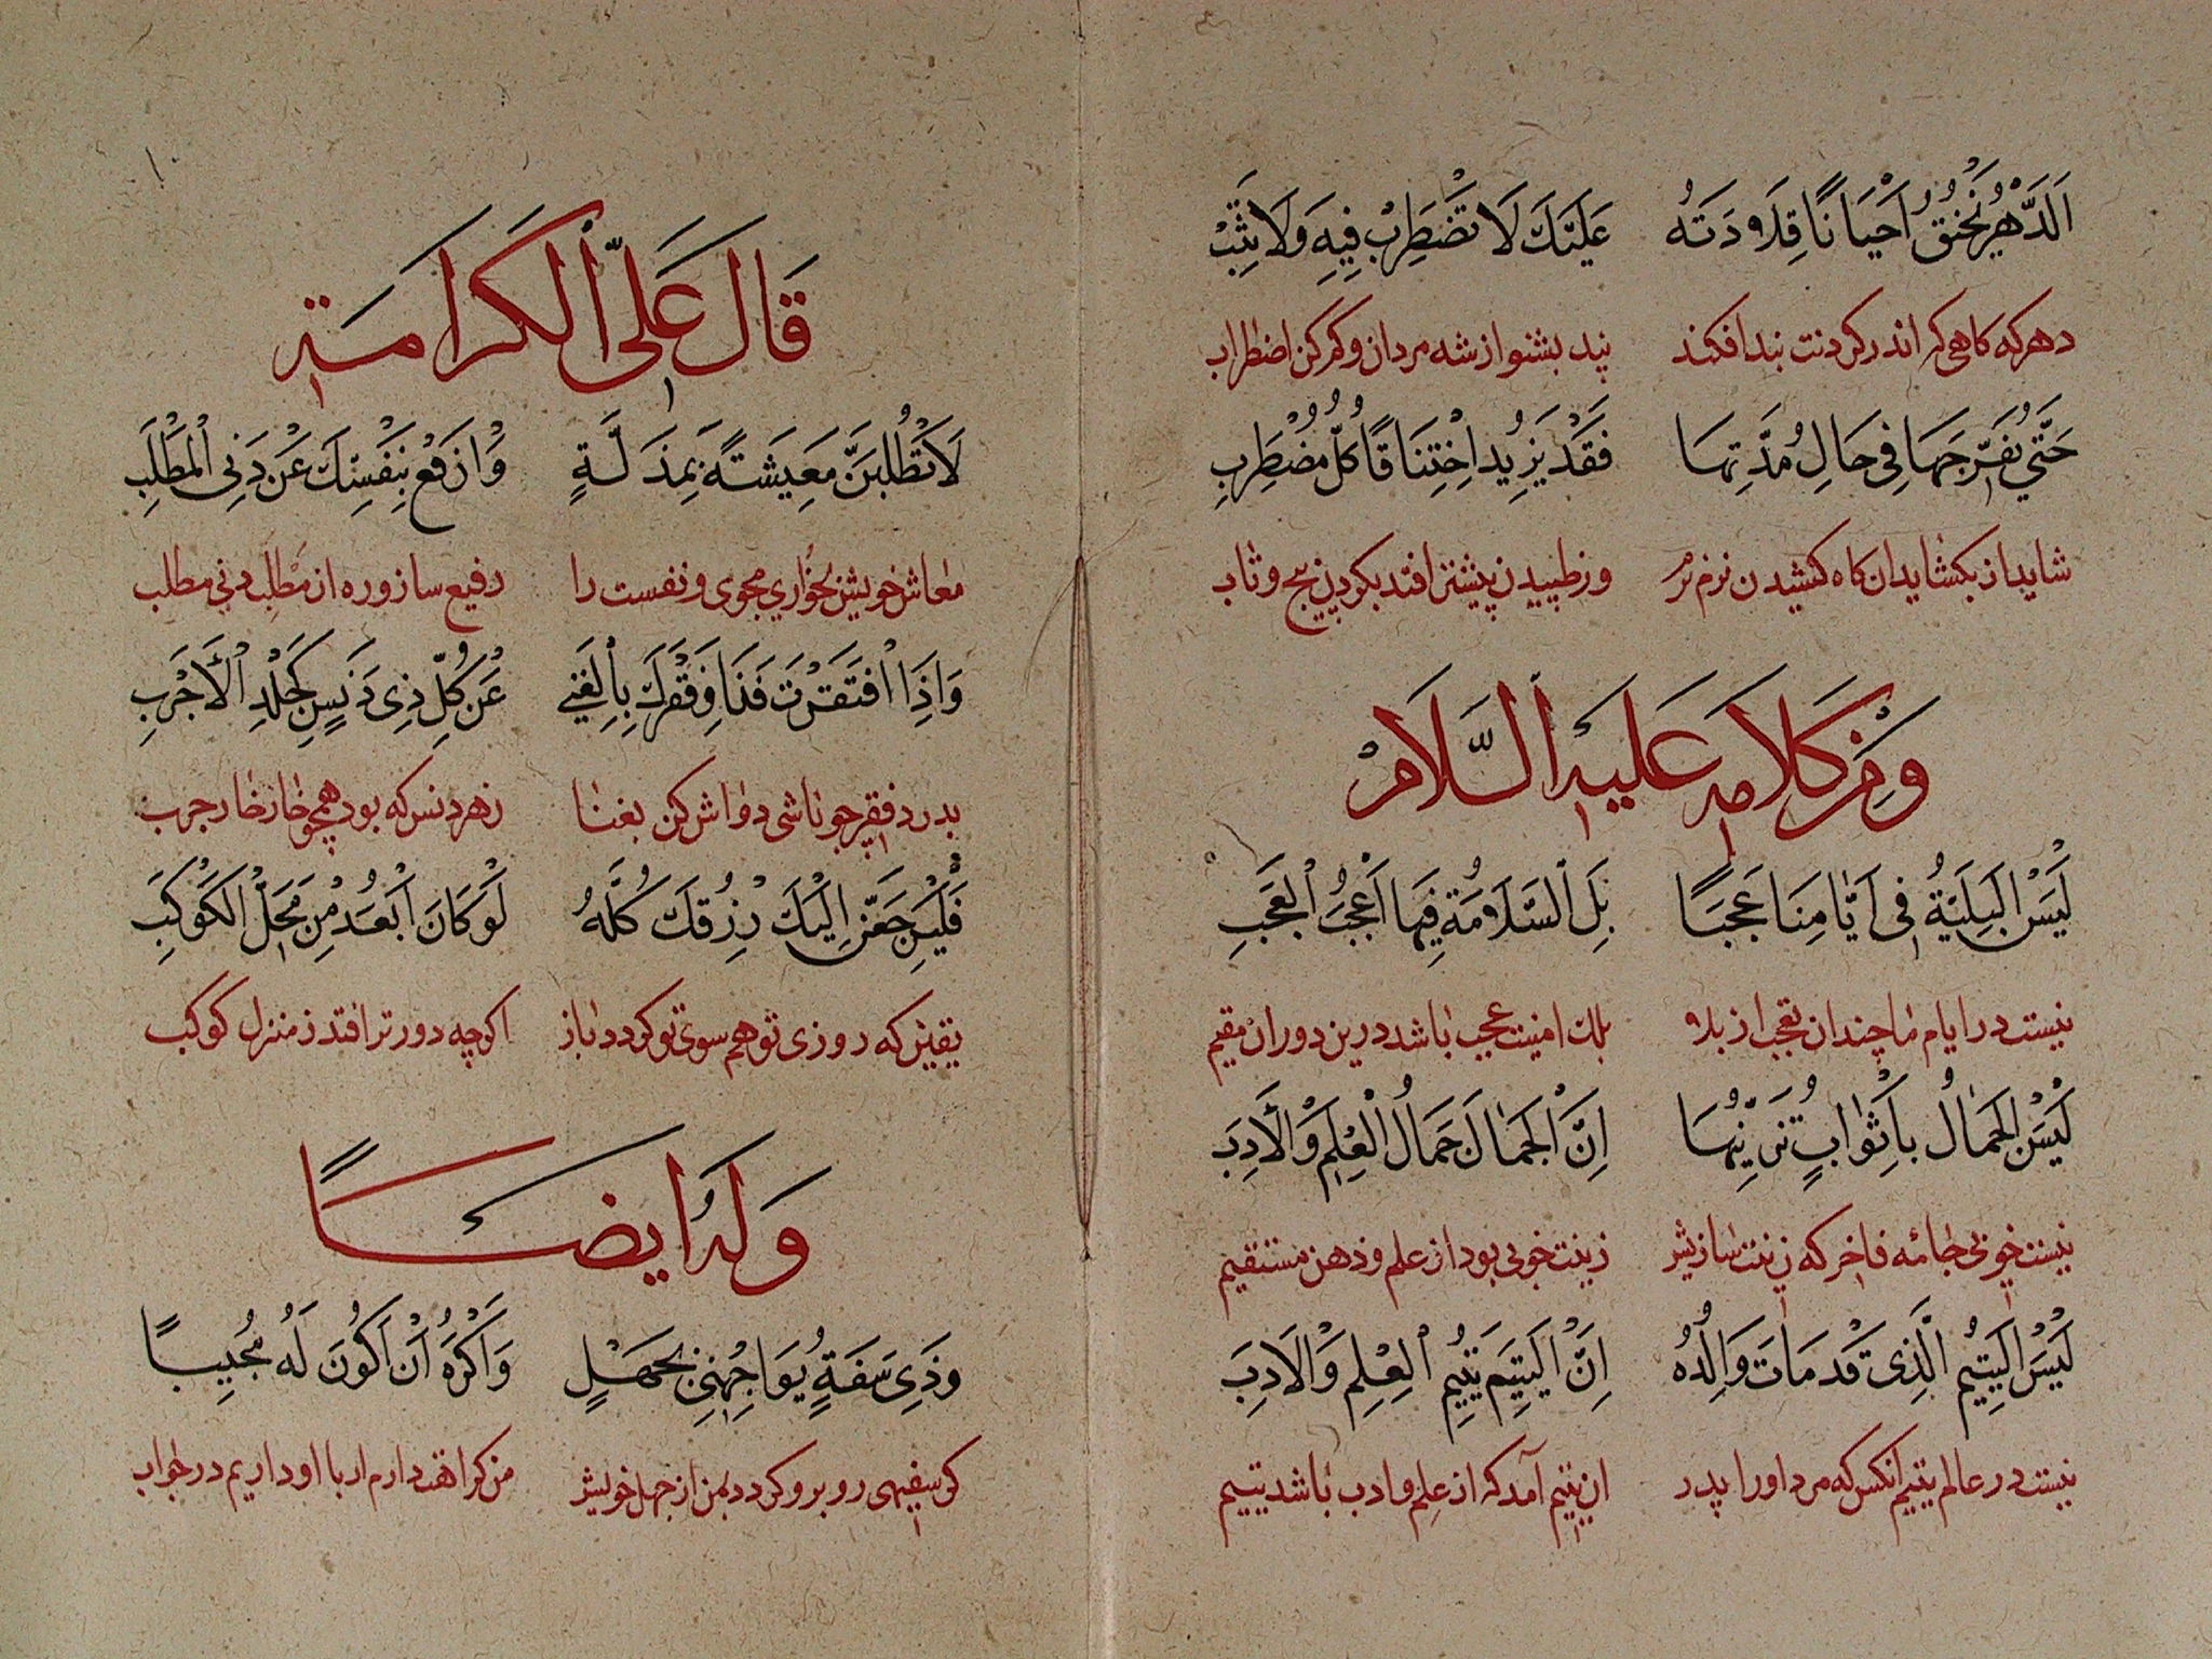 اَلدَّهْرُ يَخْنُقُ اَحْيَانًا قِلَادَتَهُ عَلَيْكَ لَا تَضْطَرِبْ فِيهِ وَلَا تَثِبْ
دهر که کاهی کر اندر کردنت بند افکند پند بشنو از شه مردان و کم کن اضطراب
حَتَّی يُفَرِّجَهَا فِی حَالِ مُدَّتِهَا فَقَدْ يَزِيدُ اخْتِنَاقًا كُلُّ مُضْطَرِبِ
شاید ار بکشاید ان کاه کشیدن نرم نرم وز طپیدن پیشتر افتد بکردن پیچ و تاب
وَمِنْ كَلَامِهِ عَلَيْهِ السَّلَامْ
لَيْسَ الْبَلِيَّةُ فِی اَيَّامِنَا عَجَبًا بَلِ السَّلَامَةُ فِيهَا اَعْجَبُ الْعَجَبِ
نیست در ایام ما چندان تعجب از بلا بلک امنیت عجب باشد درین دوران مقیم
لَيْسَ الْجَمَالُ بِاَثْوَابٍ تُزَيِّنُهَا اِنَّ الْجَمَالَ جَمَالُ الْعِلْمِ وَالْاَدَبِ
نیست خوبی جامه فاخر که زینت سازیش زینت خوبی بود از علم و ذهن مستقیم
لَيْسَ الْيَتِيمُ الَّذِی قَدْ مَاتَ وَالِدُهُ اِنَّ الْيَتِيمَ يَتِيمُ الْعِلْمِ وَالْاَدَبِ
نیست در عالم یتیم انکس که مرد او را پدر ان یتیم آمد که از علم و ادب باشد یتیم
قَالَ عَلَيَّ الْكَرَامَةِ
لَا تَطْلُبَنَّ مَعِيشَةً بِمَذَلَّةٍ وَارْفَعْ بِنَفْسِكَ عَنْ دَنِی الْمَطْلَبِ
معاش خویش بخواری مجوی و نفست را رفیع ساز و ره از مطلب دنی مطلب
وَاِذَا افْتَقَرْتَ فَدَاوِ فَقْرَكَ بِالْغِنَی عَنْ كُلِّ ذِی دَنَسٍ كَجِلْدِ الْاَجْرَبِ
بدرد فقر چو باشی دواش کن بغنا زهر دنس که بود همچو خارخار جرب
فَلَيَرْجِعَنَّ اِلَيْكَ رِزْقُكَ كُلُّهُ لَوْ كَانَ اَبْعَدَ مِنْ مَحَلِّ الْكَوْكَبِ
یقین که روزی تو هم سوی تو کردد باز اکرچه دورتر افتد ز منزل کوکب
وَلَهُ اَيْضًا
وَذِی سَفَهٍ يُوَاجِهُنِی بِجَهْلٍ وَاَكْرَهُ اَنْ اَكُونَ لَهُ مُجِيبًا
کر سفیهی روبرو کردد بمن از جهل خویش من کراهت دارم ار با او دراییم در جواب